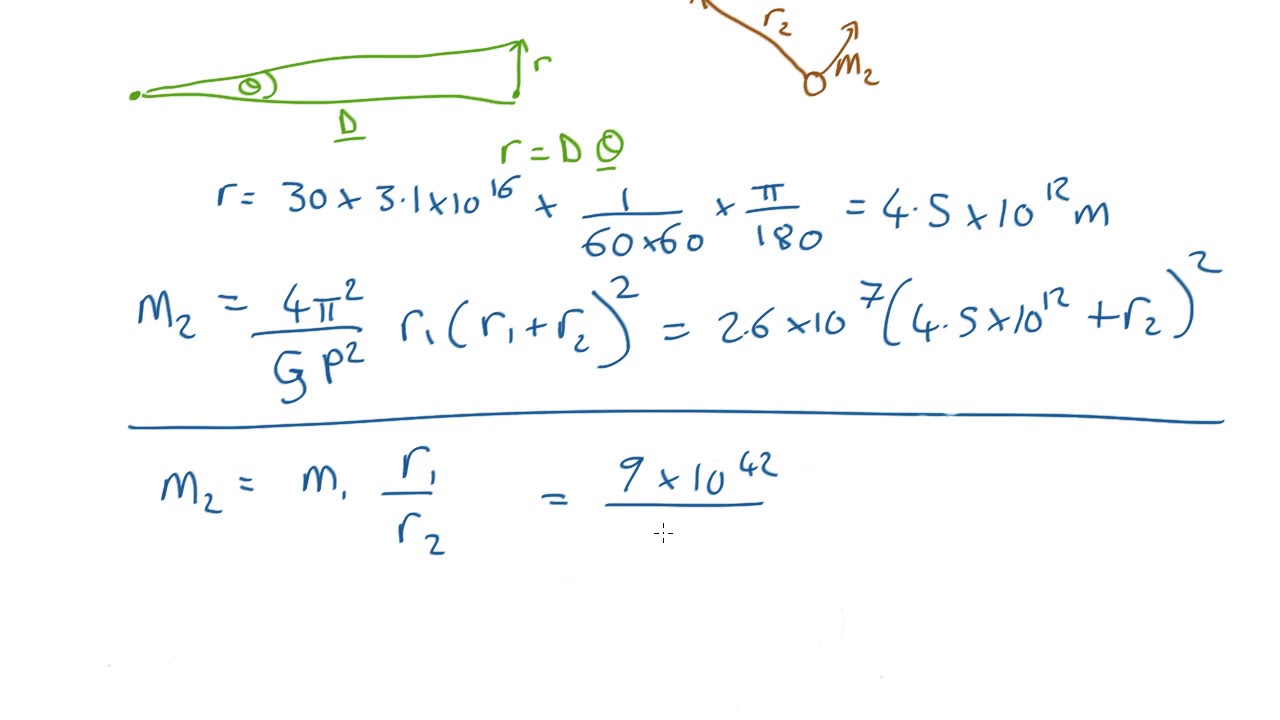 r₂
m₂
θ
r
D
r = D θ
r = 30 × 3.1×10¹⁶ × 1/(60×60) × π/180 = 4.5 × 10¹² m
M₂ = 4π²/(G P²) r₁(r₁+r₂)² = 2.6 ×10⁷(4.5×10¹² + r₂)²
M₂ = m₁ r₁/r₂ = 9 × 10⁴²